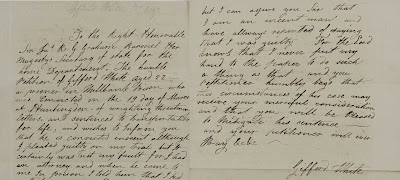 To the Right Honorable
Sir Js R. G. Graham Baronet Her
Majestys Secretary of State for the
Home Department. The humble
Petition of Gifford White aged 22
a prisoner in Millbank Prison who
was Convicted on the 19 Day of March
at Huntingdon for writing threatening
letters, and sentenced to transportation
for life, and wishes to inform you
that he is convicted inocent although
I pleaded guilty on my trial but it
certainly was not my fault for I had
an attorney and when he came to
me in prison I told him that I did
but I can assure you Sir that
I am an inocent man and
have allways repented of saying
that I was guilty For the Lord
knows that I never put my
hand to the paper to do such
a thing as that and your
petitioner humbley hopes that
the circumstances of his case may
receive your merciful consideration
and that you will be pleased
to Mitigate his sentence
and your petitioner will ever
Pray &c &c
Gifford White